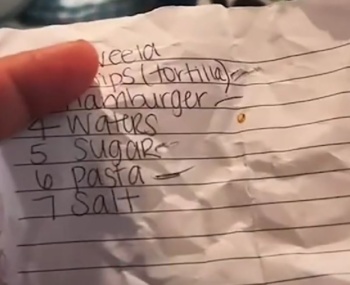 veeta
ips (tortilla)
hamburger
4 Waters
5 Sugar
6 pasta
7 Salt